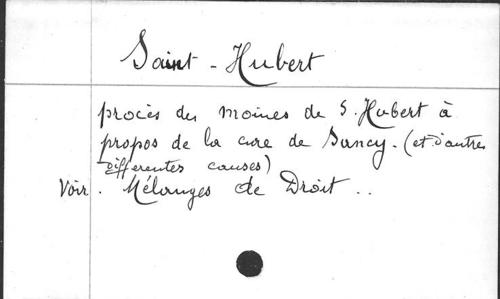 Saint - Hubert
procès des moines de S. Hubert à
propos de la cure de Sancy. (et d'autres
differentes causes)
Voir. Mélanges de Droit ..